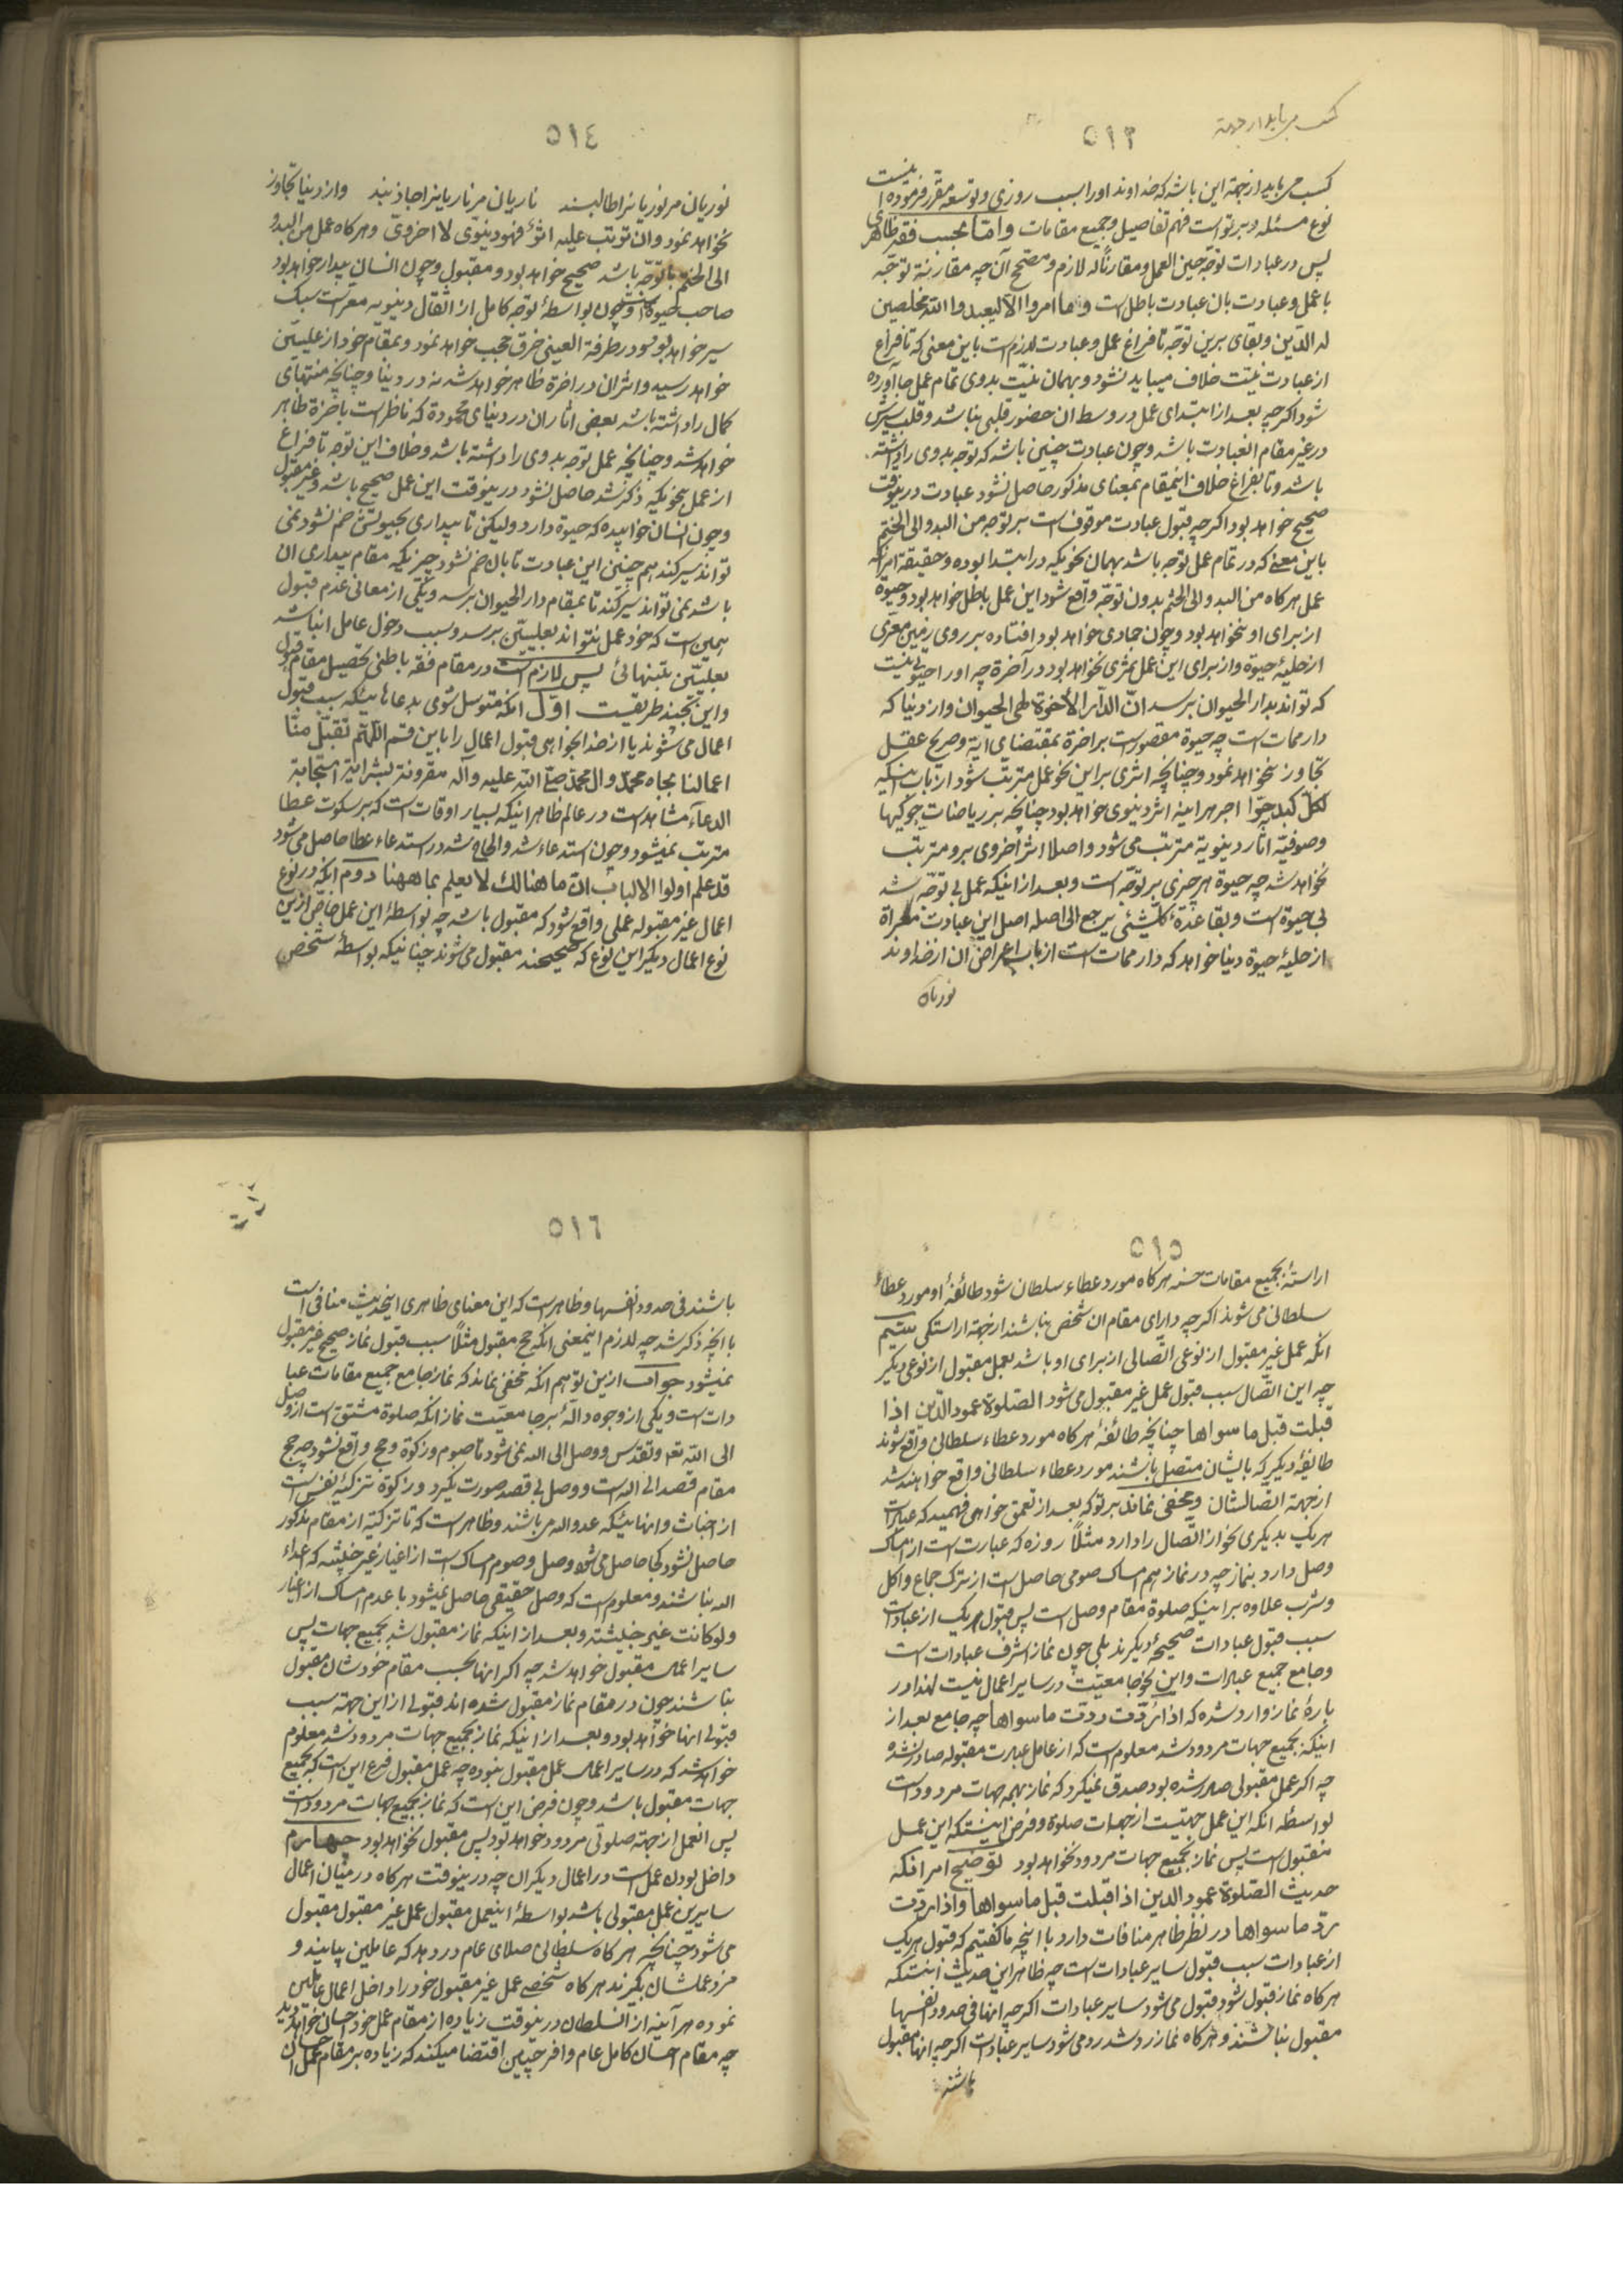 ٥١٣
کسب می باید از جهة
کسب می باید از جهة این باشد که خداوند او را سبب روزی و توسعه مقرر فرموده نیست
نوع مسئله و بر تو است فهم تفاصیل و جمیع مقامات واما بحسب فقه ظاهری
پس در عبادات توجه حین العمل و مقارنا له لازم و مصحح آن چه مقارنة توجه
با عمل و عبادت بان عبادت باطل است وما امروا الا لیعبدوا الله مخلصین
له الدین و بقای برین توجه تا فراغ عمل و عبادت لازم است باین معنی که تا فراغ
از عبادت نیت خلاف میباید نشود و بهمان نیت بدوی تمام عمل جا آورده
شود اکرچه بعد از ابتدای عمل در وسط ان حضور قلبی نباشد و قلب سیرش
در غیر مقام العبادت باشد و چون عبادت چنین باشد که توجه بدوی را داشته
باشد و تا بفراغ خلاف اینمقام بمعنای مذکور حاصل نشود عبادت درینوقت
صحیح خواهد بود اکرچه قبول عبادت موقوف است بر توجه من البدو الی الختم
باین معنی که در تمام عمل توجه باشد بهمان نحویکه در ابتدا بوده و حقیقة امر آنکه
عمل هرکاه من البدو الی الختم بدون توجه واقع شود این عمل باطل خواهد بود و حیوة
از برای او نخواهد بود و چون جمادی خواهد بود افتاده بر روی زمین معری
از حلیهٔ حیوة و از برای این عمل ثمری نخواهد بود در آخرة چه او را حیوتی نیست
که تواند بدار الحیوان برسد ان الدار الآخرة لهی الحیوان و از دنیا که
دار ممات است چه حیوة مقصور است بر اخرة بمقتضای آیة و صریح عقل
تجاوز نخواهد نمود و چنانچه اثری بر این نحو عمل مترتب شود از باب اینکه
لکل کبد حرا اجر هر اینه اثر دنیوی خواهد بود چنانچه بر ریاضات جوکیها
وصوفیه اثار دنیویة مترتب می شود و اصلا اثر اخروی برو مترتب
نخواهد شد چه حیوة هر چیزی بر توجه است و بعد از اینکه عمل بی توجه شد
بی حیوة است و بقاعدة کل شیئ یرجع الی اصله اصل این عبادت معراة
از حلیهٔ حیوة دنیا خواهد که دار ممات است از باب اعراض ان از خداوند
نوریان
٥١٤
نوریان مر نوریانرا طالبند ناریان مر ناریانرا جاذبند و از دنیا تجاوز
نخواهد نمود وان ترتب علیه اثر فهو دنیوی لا اخروی و هرکاه عمل من البدو
الی الختم با توجه باشد صحیح خواهد بود و مقبول و چون انسان بیدار خواهد بود
صاحب حیوة است و چون بواسطهٔ توجه کامل از اثقال دنیویه معرست سبک
سیر خواهد بود و در طرفة العینی خرق حجب خواهد نمود و بمقام خود از علیین
خواهد رسید و اثر ان در اخرة ظاهر خواهد شد نه در دنیا و چنانچه منتهای
کمال را داشته باشد بعضی اثار ان در دنیای محموده که ناظر است باخرة ظاهر
خواهد شد و چنانچه عمل توجه بدوی را داشته باشد و خلاف این توجه تا فراغ
از عمل بنحویکه ذکر شد حاصل نشود درینوقت این عمل صحیح باشد و غیر مقبول
و چون انسان خوابیده که حیوة دارد ولیکن تا بیداری بحیوتش ضم نشود نمی
تواند سیر کند هم چنین این عبادت تا بان ضم نشود چیزیکه مقام بیداری ان
باشد نمی تواند سیر کند تا بمقام دار الحیوان برسد و یکی از معانی عدم قبول
همین است که خود عمل نتواند بعلیین برسد و سبب دخول عامل انباشد
بعلیین بتنهائی پس لازم است در مقام فقه باطنی تحصیل مقام قبول
و این بچند طریقست اول انکه متوسل شوی بدعاهائیکه سبب قبول
اعمال می شوند یا از خدا بخواهی قبول اعمال را باین قسم اللهم تقبل منا
اعمالنا بجاه محمد وال محمد صلی الله علیه وآله مقرونة بشرایئة استجابة
الدعاء مشاهد است در عالم ظاهر اینکه بسیار اوقات است که بر سکوت عطا
مترتب نمیشود و چون استدعاء شد و الحاح شد در استدعاء عطا حاصل می شود
قد علم اولوا الالباب ان ما هنالک لا یعلم بما ههنا دوم آنکه در نوع
اعمال غیر مقبوله عملی واقع شود که مقبول باشد چه بواسطهٔ این عمل خاص ازین
نوع اعمال دیگر این نوع که صحیحند مقبول می شوند چنانیکه بواسطهٔ شخص
٥١٥
اراستهٔ بجمیع مقامات حسنه هرکاه مورد عطاء سلطان شود طائفهٔ او مورد عطاء
سلطانی می شوند اکرچه دارای مقام ان شخص نباشند از جهة اراستکی سیم
انکه عمل غیر مقبول از نوعی اتصالی از برای او باشد بعمل مقبول از نوعی دیکر
چه این اتصال سبب قبول عمل غیر مقبول می شود الصلوة عمود الدین اذا
قبلت قبل ما سواها چنانچه طائفهٔ هرکاه مورد عطاء سلطانی واقع شوند
طائفهٔ دیکر که بایشان متصل باشند مورد عطاء سلطانی واقع خواهند شد
از جهة اتصالشان و مخفی نماند بر تو که بعد از تعمق خواهی فهمید که عبادات
هر یک بدیکری نحو از اتصال را دارد مثلا روزه که عبارت است از امساک
وصل دارد بنماز چه در نماز هم امساک صومی حاصل است از ترک جماع و اکل
و شرب علاوه بر اینکه صلوة مقام وصل است پس قبول هر یک از عبادات
سبب قبول عبادات صحیحهٔ دیکرند بلی چون نماز اشرف عبادات است
و جامع جمیع عبادات و این نحو جامعیت در سایر اعمال نیست لهذا در
بارهٔ نماز وارد شده که اذا ردت ردت ما سواها چه جامع بعد از
اینکه بجمیع جهات مردود شد معلوم است که از عامل عبادت مقبوله صادر نشده
چه اکر عمل مقبولی صادر شده بود صدق نمیکرد که نماز بهمه جهات مردود است
بواسطه انکه این عمل جهتیست از جهات صلوة و فرض اینستکه این عمل
مقبول است پس نماز بجمیع جهات مردود نخواهد بود توضیح امر انکه
حدیث الصلوة عمود الدین اذا قبلت قبل ما سواها واذا ردت
رد ما سواها در نظر ظاهر منافات دارد با انچه ما کفتیم که قبول هر یک
از عبادات سبب قبول سایر عبادات است چه ظاهر این حدیث اینستکه
هرکاه نماز قبول شود قبول می شود سایر عبادات اکرچه انها فی حدود انفسها
مقبول نباشند و هرکاه نماز رد شد رد می شود سایر عبادات اکرچه انها مقبول
باشند
٥١٦
باشند فی حدود انفسها و ظاهر است که این معنای ظاهری اینحدیث منافی است
با انچه ذکر شد چه لازم اینمعنی انکه حج مقبول مثلا سبب قبول نماز صحیح غیر مقبول
نمیشود جواب ازین توهم انکه مخفی نماند که نماز جامع جمیع مقامات عبا
دات است و یکی از وجوه دالهٔ بر جامعیت نماز انکه صلوة مشتق است از وصل
الی الله تعه و تقدس و وصل الی الله نمی شود تا صوم و زکوة و حج واقع نشود چه حج
مقام قصد الی الله است و وصل بی قصد صورت نکیرد و زکوة تزکیهٔ نفس است
از اخباث و انهائیکه عدو الله می باشند و ظاهر است که تا تزکیه از مقام مذکور
حاصل نشود کجا حاصل می شود وصل و صوم امساک است از اغیار غیر خبیثه که اعداء
الله نباشند و معلوم است که وصل حقیقی حاصل نمیشود با عدم امساک از اغیار
ولو کانت غیر خبیثة و بعد از اینکه نماز مقبول شد بجمیع جهات پس
سایر اعمال مقبول خواهد شد چه اکر انها بحسب مقام خودشان مقبول
نباشند چون در مقام نماز مقبول شده اند قبولی از این جهة سبب
قبولی انها خواهد بود و بعد از اینکه نماز بجمیع جهات مردود شد معلوم
خواهد شد که در سایر اعمال عمل مقبول نبوده چه عمل مقبول فرع این است که بجمیع
جهات مقبول باشد و چون فرض این است که نماز بجمیع جهات مردود است
پس انعمل از جهة صلوتی مردود خواهد بود پس مقبول نخواهد بود چهارم
داخل بودن عمل است در اعمال دیکران چه درینوقت هرکاه در میان اعمال
سایرین عمل مقبولی باشد بواسطهٔ اینعمل مقبول عمل غیر مقبول مقبول
می شود چنانچه هرکاه سلطانی صلای عام در دهد که عاملین بیایند و
مزد عملشان بکیرند هرکاه شخصی عمل غیر مقبول خود را داخل اعمال عاملین
نموده هر آینه از السلطان درینوقت زیاده از مقام عمل خود احسان خواهد دید
چه مقام احسان کامل عام وافر چنین اقتضا میکند که زیاده بر مقام عمل احسان